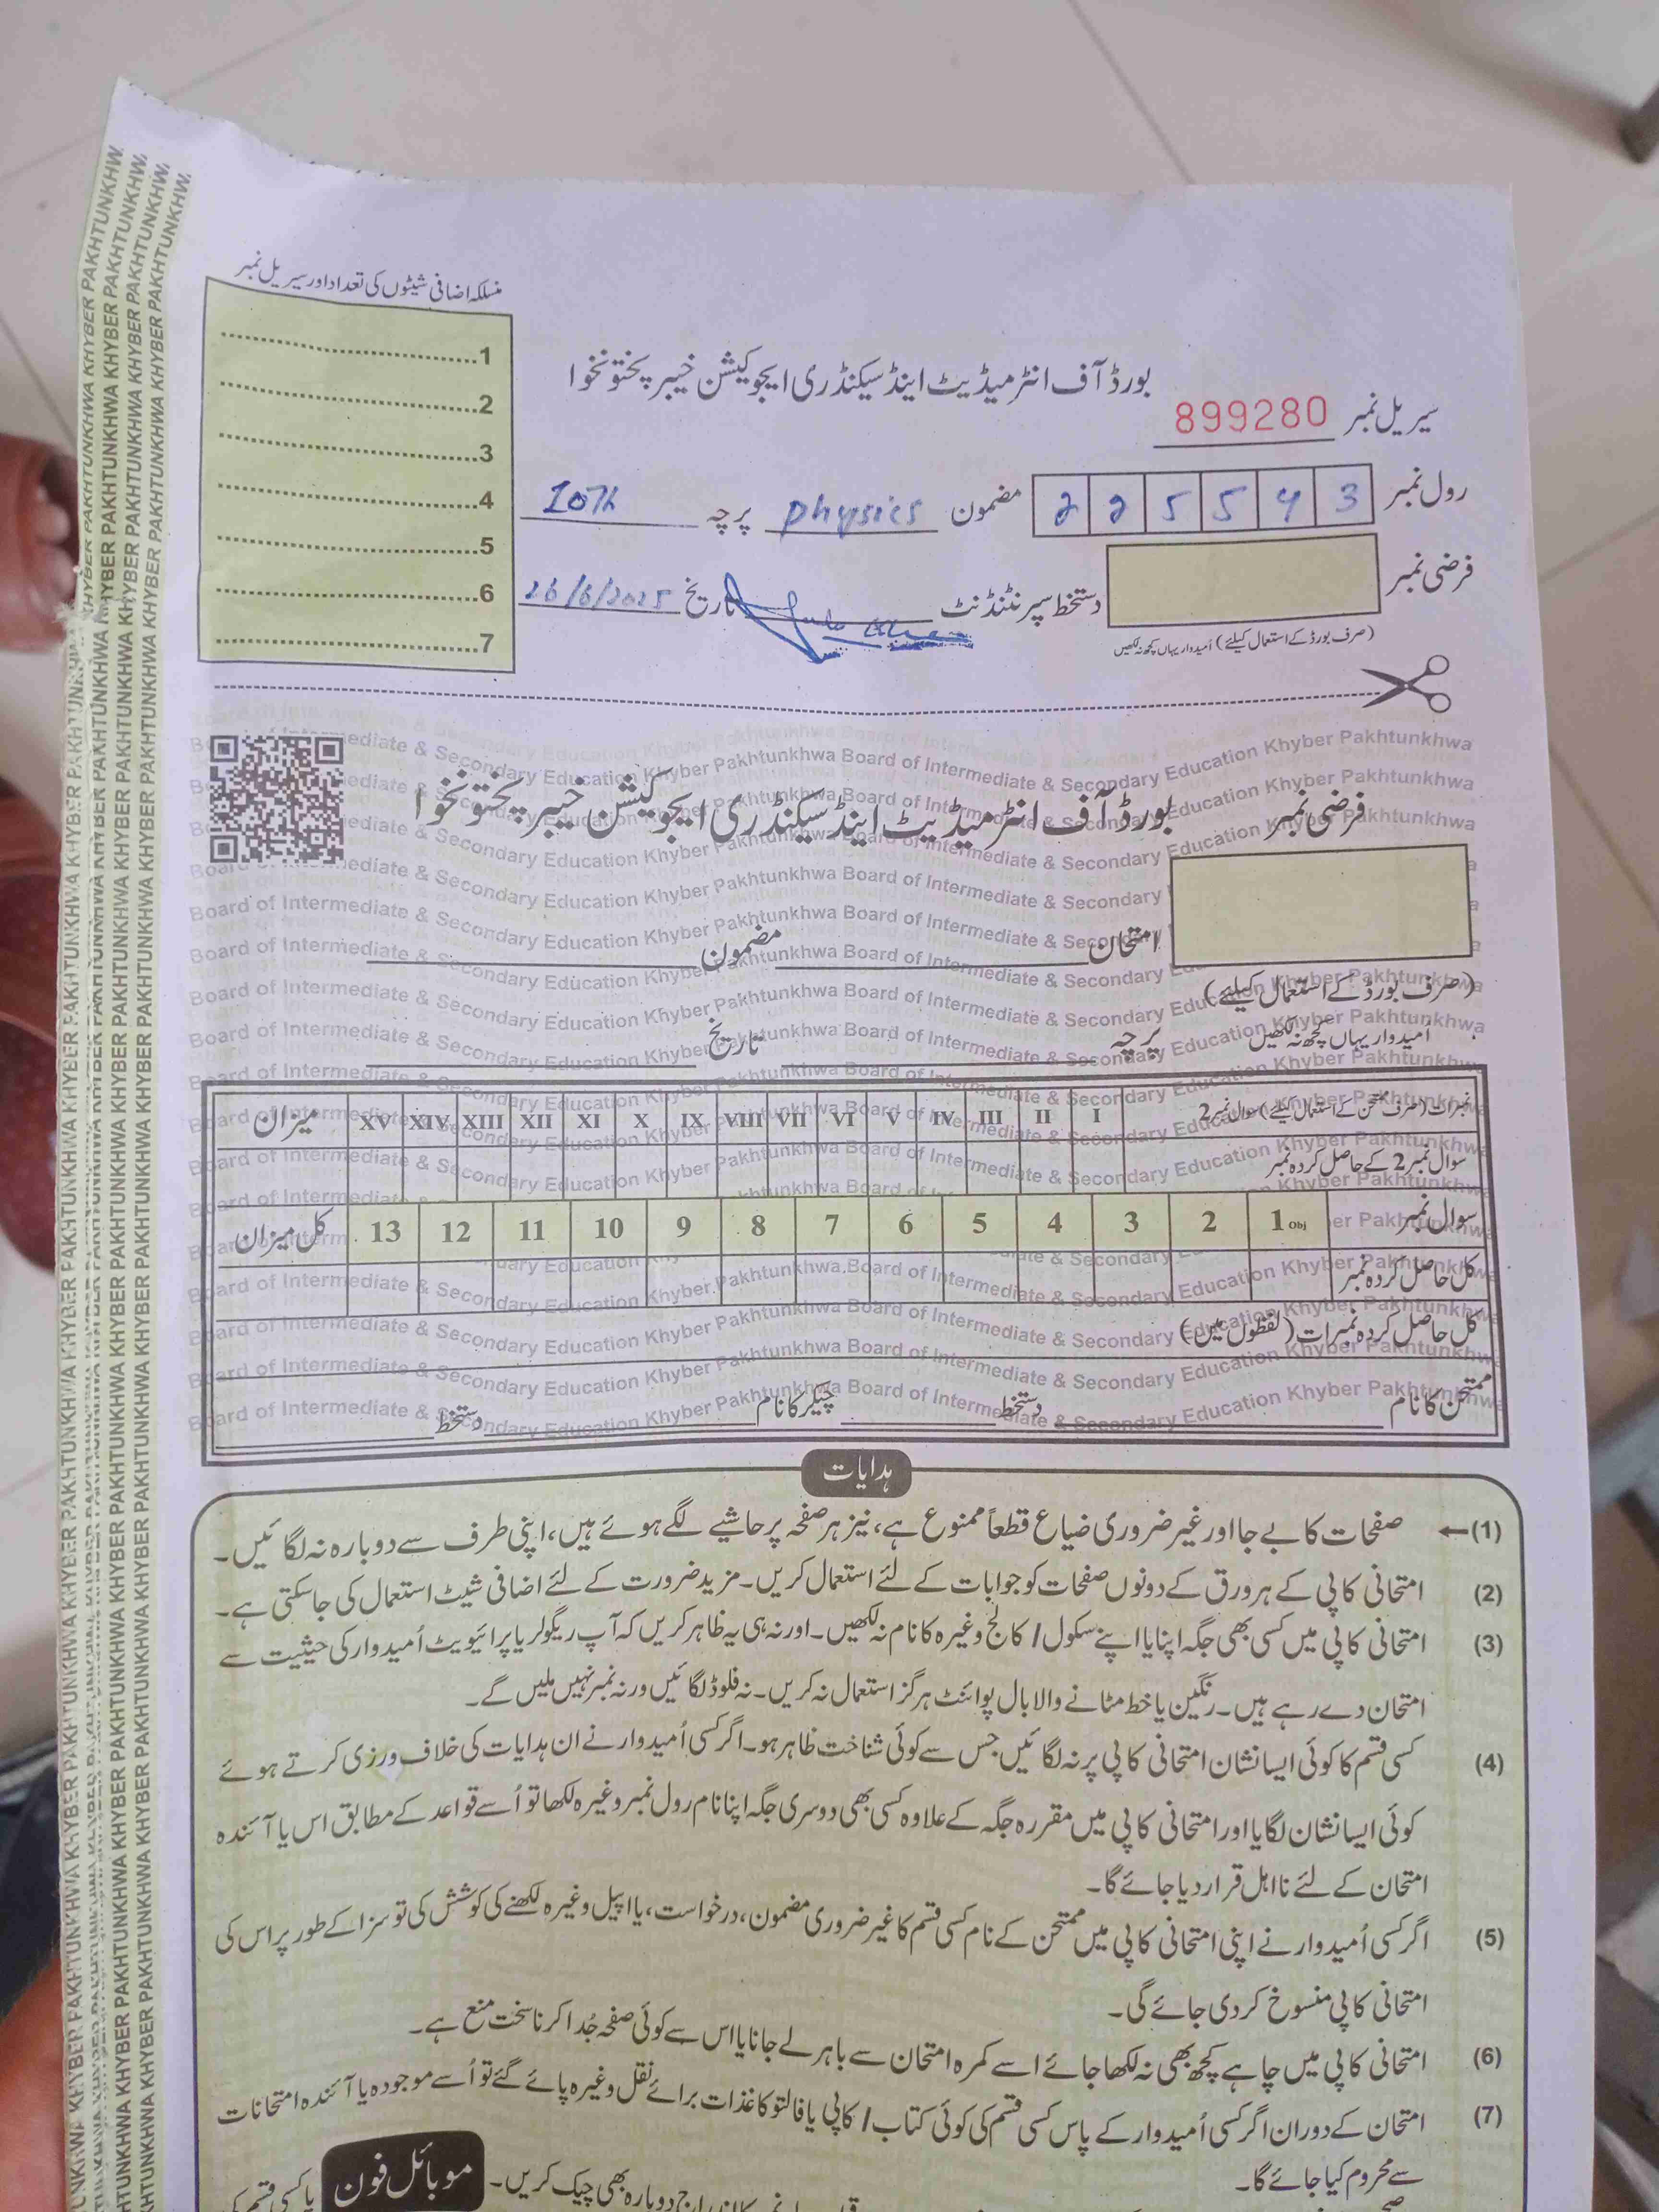 منسلکہ اضافی شیٹوں کی تعداد اور سیریل نمبر
1
2
3
4
5
6
7
بورڈ آف انٹرمیڈیٹ اینڈ سیکنڈری ایجوکیشن خیبر پختونخوا
سیریل نمبر 899280
رول نمبر 225543 مضمون Physics پرچہ 10Th
فرضی نمبر
دستخط سپرنٹنڈنٹ تاریخ 26/6/2025
(صرف بورڈ کے استعمال کیلئے) اُمیدوار یہاں کچھ نہ لکھیں
بورڈ آف انٹرمیڈیٹ اینڈ سیکنڈری ایجوکیشن خیبر پختونخوا
فرضی نمبر
امتحان مضمون
(صرف بورڈ کے استعمال کیلئے)
امیدوار یہاں کچھ نہ لکھیں
پرچہ تاریخ
نمبرات (صرف ممتحن کے استعمال کیلئے) سوال نمبر 2 I II III IV V VI VII VIII IX X XI XII XIII XIV XV میزان
سوال نمبر 2 کے حاصل کردہ نمبر
سوال نمبر 1 Obj 2 3 4 5 6 7 8 9 10 11 12 13 کل میزان
کل حاصل کردہ نمبر
کل حاصل کردہ نمبرات (لفظوں میں)
ممتحن کا نام دستخط چیکر کا نام دستخط
ہدایات
(1) صفحات کا بے جا اور غیر ضروری ضیاع قطعاً ممنوع ہے، نیز ہر صفحہ پر حاشیے لگے ہوئے ہیں، اپنی طرف سے دوبارہ نہ لگائیں۔
(2) امتحانی کاپی کے ہر ورق کے دونوں صفحات کو جوابات کے لئے استعمال کریں۔ مزید ضرورت کے لئے اضافی شیٹ استعمال کی جاسکتی ہے۔
(3) امتحانی کاپی میں کسی بھی جگہ اپنا یا اپنے سکول / کالج وغیرہ کا نام نہ لکھیں۔ اور نہ ہی یہ ظاہر کریں کہ آپ ریگولر یا پرائیویٹ اُمیدوار کی حیثیت سے
امتحان دے رہے ہیں۔ رنگین یا خط مٹانے والا بال پوائنٹ ہرگز استعمال نہ کریں۔ نہ فلوڈ لگائیں ورنہ نمبر نہیں ملیں گے۔
(4) کسی قسم کا کوئی ایسا نشان امتحانی کاپی پر نہ لگائیں جس سے کوئی شناخت ظاہر ہو۔ اگر کسی اُمیدوار نے ان ہدایات کی خلاف ورزی کرتے ہوئے
کوئی ایسا نشان لگایا اور امتحانی کاپی میں مقررہ جگہ کے علاوہ کسی بھی دوسری جگہ اپنا نام رول نمبر وغیرہ لکھا تو اُسے قواعد کے مطابق اس یا آئندہ
امتحان کے لئے نااہل قرار دیا جائے گا۔
(5) اگر کسی اُمیدوار نے اپنی امتحانی کاپی میں ممتحن کے نام کسی قسم کا غیر ضروری مضمون، درخواست، یا اپیل وغیرہ لکھنے کی کوشش کی تو سزا کے طور پر اس کی
امتحانی کاپی منسوخ کردی جائے گی۔
(6) امتحانی کاپی میں چاہے کچھ بھی نہ لکھا جائے اسے کمرہ امتحان سے باہر لے جانا یا اس سے کوئی صفحہ جُدا کرنا سخت منع ہے۔
(7) امتحان کے دوران اگر کسی اُمیدوار کے پاس کسی قسم کی کوئی کتاب / کاپی یا فالتو کاغذات برائے نقل وغیرہ پائے گئے تو اُسے موجودہ یا آئندہ امتحانات
سے محروم کیا جائے گا۔
دوبارہ بھی چیک کریں۔ موبائل فون